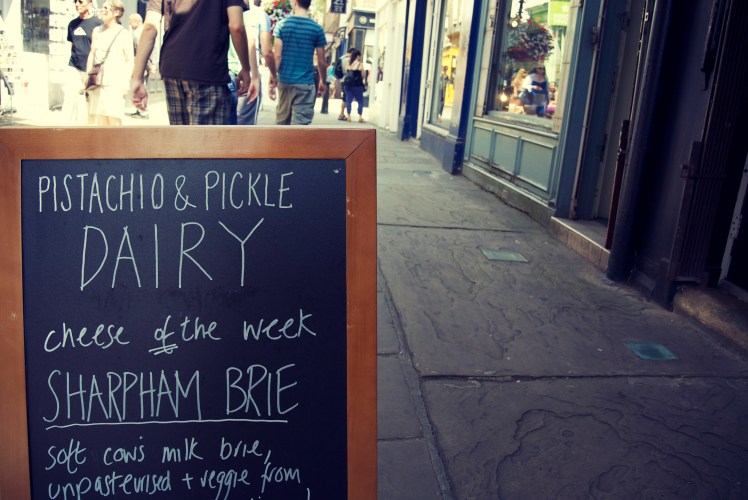 PISTACHIO & PICKLE
DAIRY
cheese of the week
SHARPHAM BRIE
soft cow's milk brie,
unpasteurised + veggie from